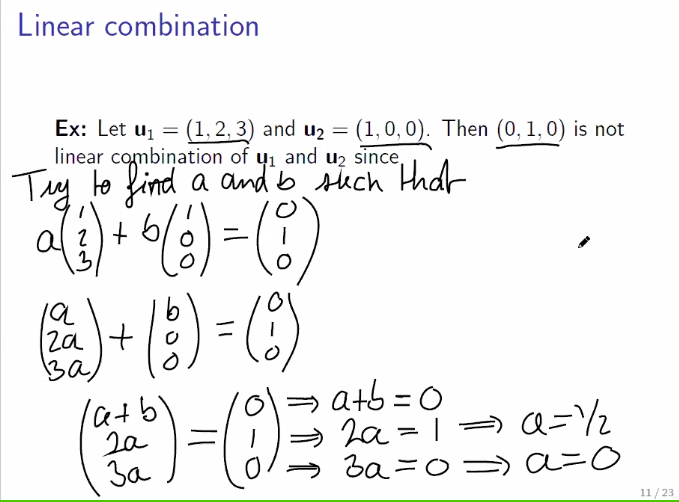 Linear combination
Ex: Let u₁ = (1, 2, 3) and u₂ = (1, 0, 0). Then (0, 1, 0) is not
linear combination of u₁ and u₂ since
Try to find a and b such that
a(1 2 3) + b(1 0 0) = (0 1 0)
(a 2a 3a) + (b 0 0) = (0 1 0)
(a+b 2a 3a) = (0 1 0)
⇒ a+b = 0
⇒ 2a = 1 ⇒ a = 1/2
⇒ 3a = 0 ⇒ a = 0
11 / 23